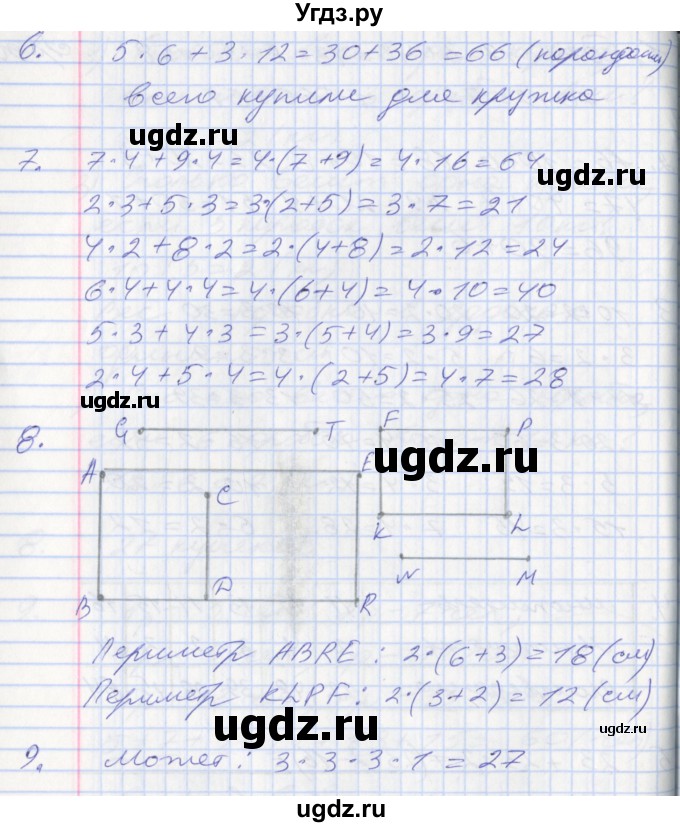 Угдз.ру
6. 5·6+3·12=30+36=66 (карандаши)
всего купили для кружка
ugdz.ru
7. 7·4+9·4=4·(7+9)=4·16=64
ugdz.ru
2·3+5·3=3·(2+5)=3·7=21
4·2+8·2=2·(4+8)=2·12=24
6·4+4·4=4·(6+4)=4·10=40
5·3+4·3=3·(5+4)=3·9=27
2·4+5·4=4·(2+5)=4·7=28
ugdz.ru
8. G T F P
ugdz.ru
A E
C
K L
N M
B D R
Периметр ABRE: 2·(6+3)=18 (см)
Периметр KLPF: 2·(3+2)=12 (см)
ugdz.ru
ugdz.ru
9. Может: 3·3·3·1=27
ugdz.ru
ugdz.ru